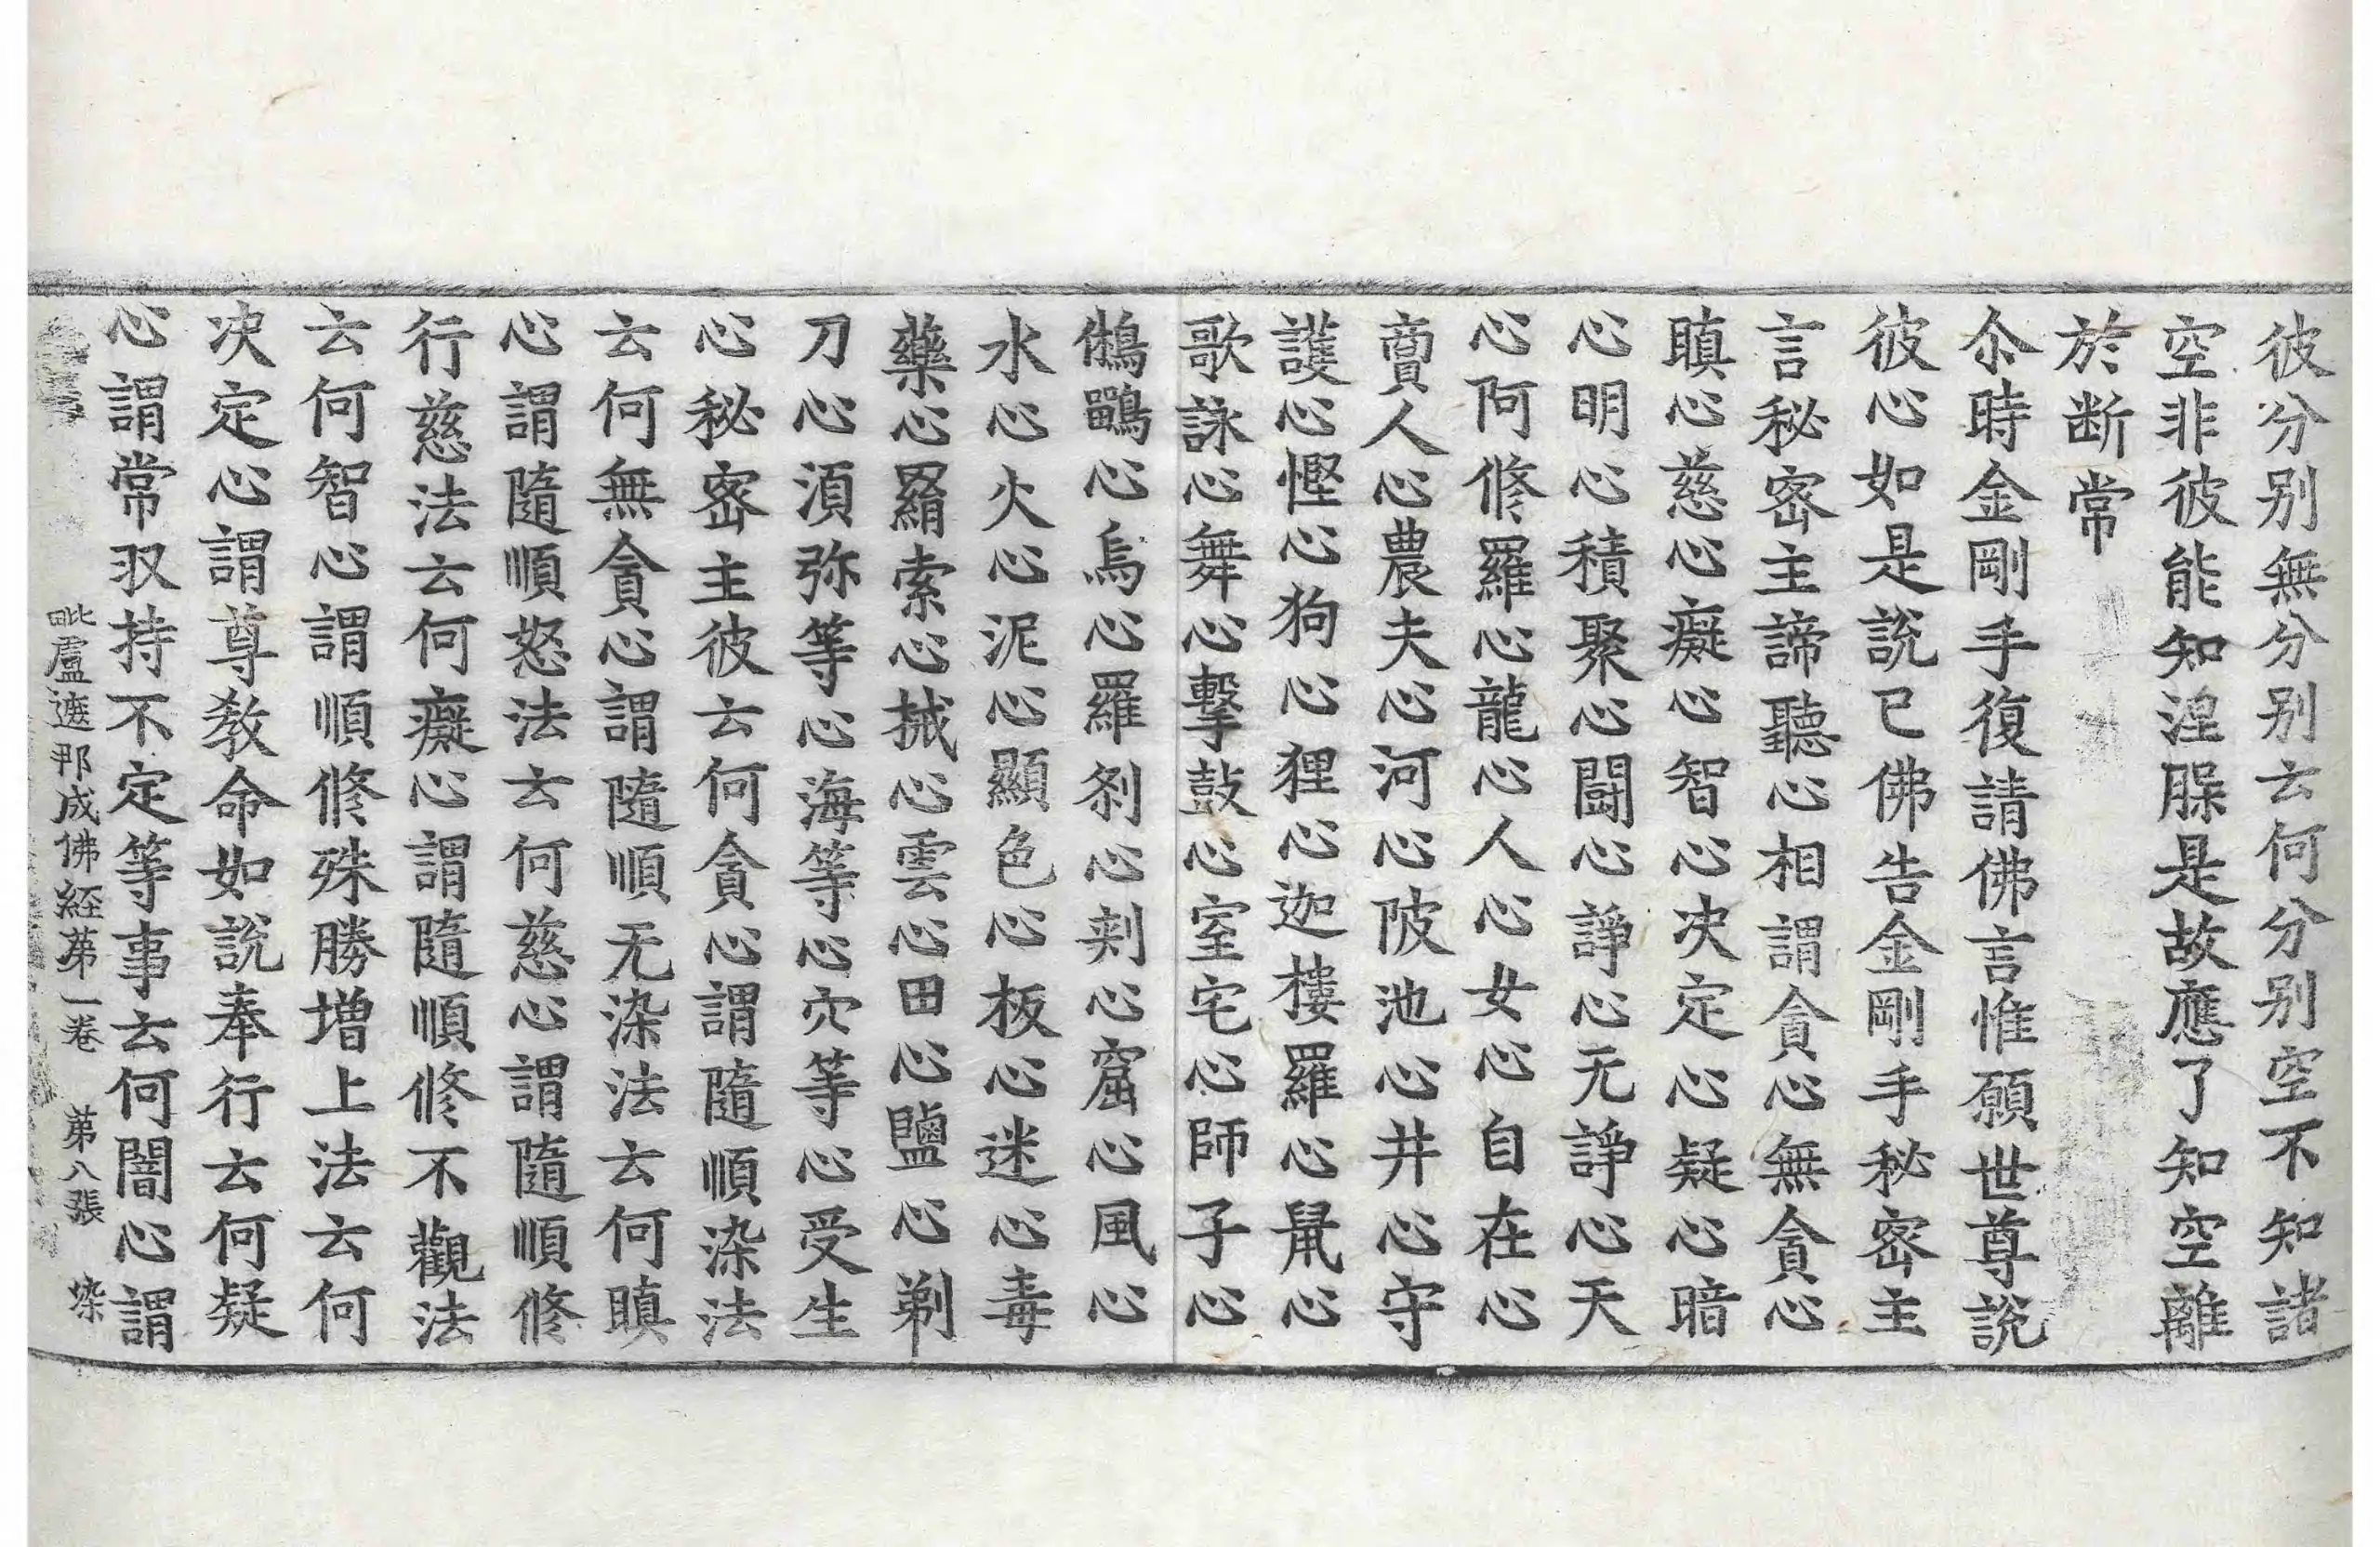 彼分別無分別云何分別空不知諸
空非彼能知涅脵是故應了知空離
於断常
尒時金剛手復請佛言惟願世尊說
彼心如是說已佛告金剛手秘密主
言秘密主諦聽心相謂貪心無貪心
瞋心慈心癡心智心决定心疑心暗
心明心積聚心闘心諍心无諍心天
心阿修羅心龍心人心女心自在心
啇人心農夫心河心陂池心井心守
護心慳心狗心狸心迦樓羅心鼠心
歌詠心舞心擊鼓心室宅心師子心
鵂鶹心烏心羅剎心刺心窟心風心
水心火心泥心顯色心板心迷心毒
藥心羂索心械心雲心田心鹽心剃
刀心湏弥等心海等心穴等心受生
心秘密主彼云何貪心謂隨順染法
云何無貪心謂隨順无染法云何瞋
心謂隨順怒法云何慈心謂隨順修
行慈法云何癡心謂隨順修不觀法
云何智心謂順修殊勝增上法云何
决定心謂尊教命如說奉行云何疑
心謂常収持不定等事云何闇心謂
毗盧遮那成佛經苐一卷　苐八張　染